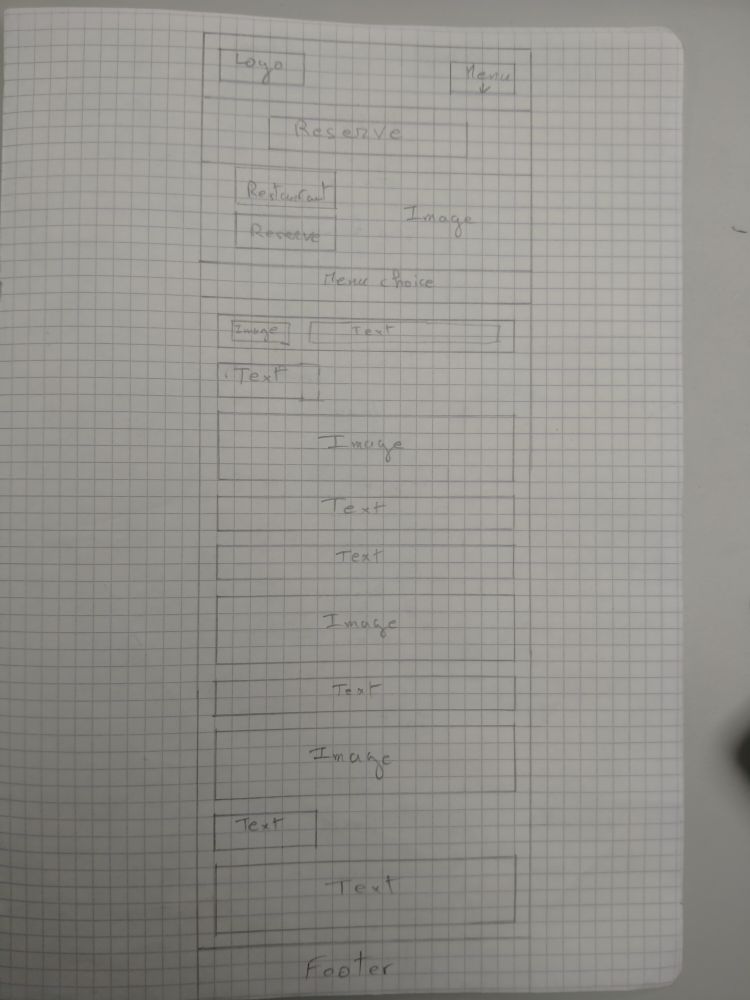 Logo
Menu
Reserve
Restaurant
Image
Reserve
Menu choice
Image
Text
Text
Image
Text
Text
Image
Text
Image
Text
Text
Footer